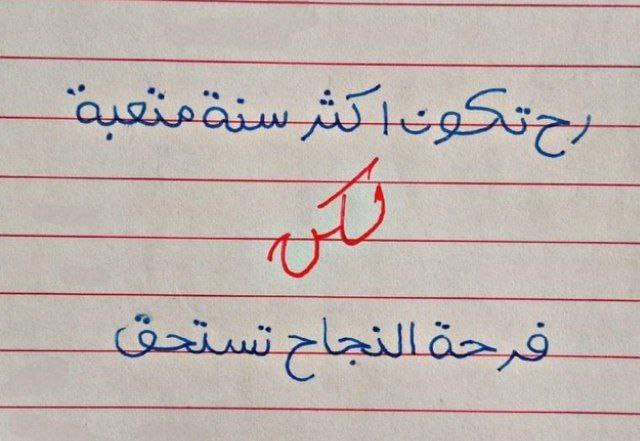 رح تكون اكثر سنة متعبة
لكن
فرحة النجاح تستحق